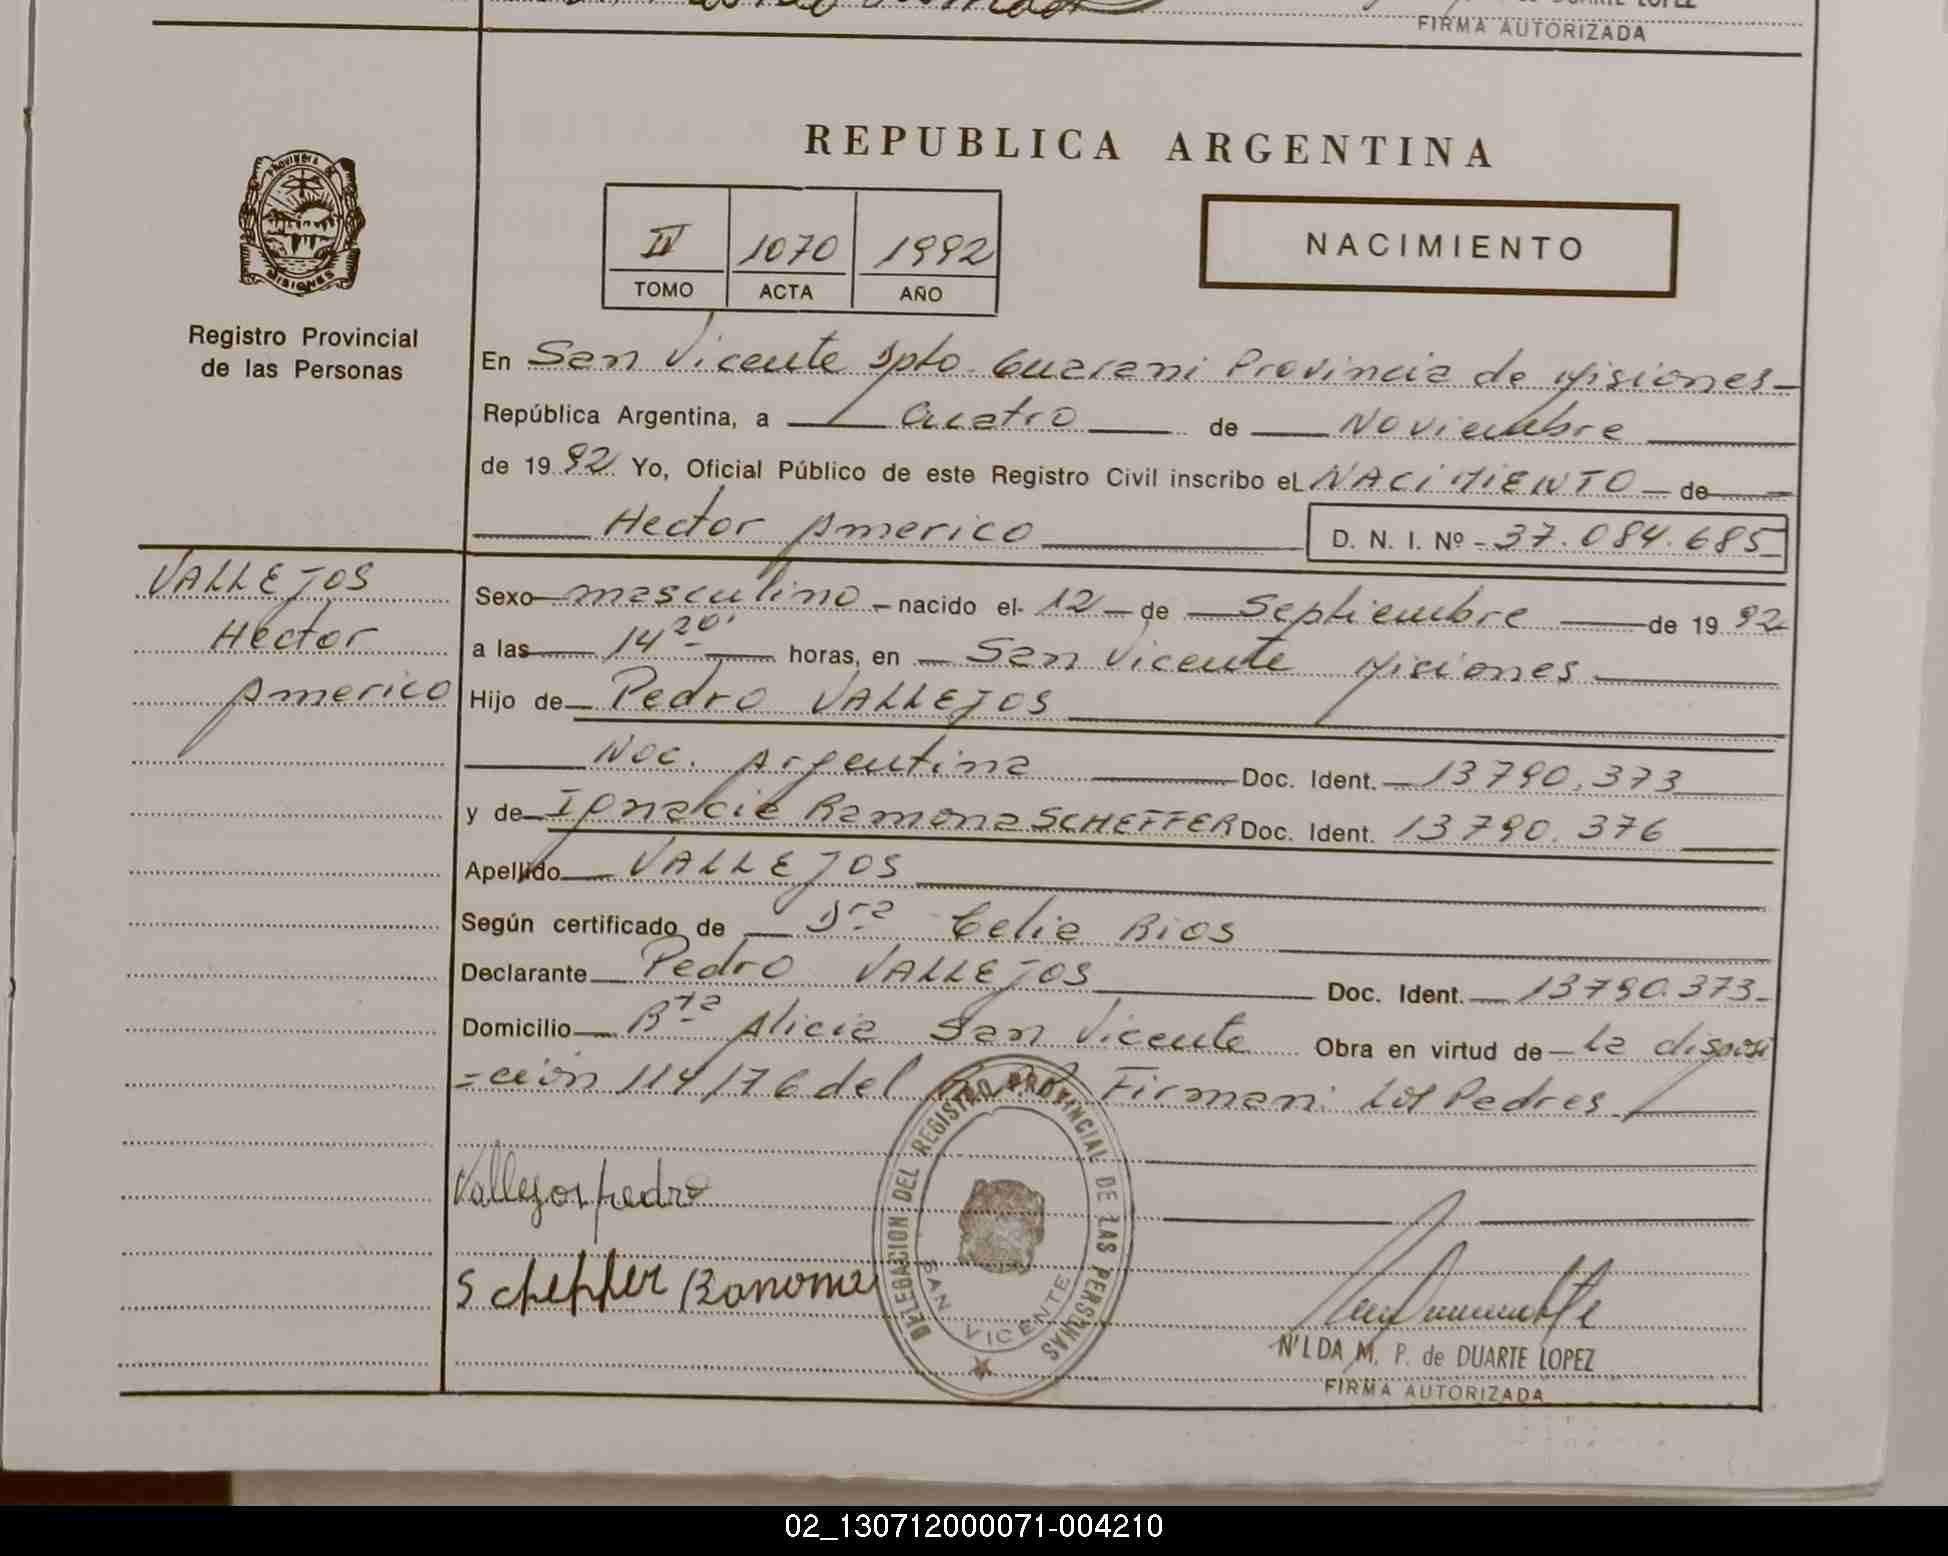 DUARTE LOPEZ
FIRMA AUTORIZADA
REPUBLICA ARGENTINA
PROVINCIA DE
MISIONES
Registro Provincial
de las Personas
IV 1070 1992
TOMO ACTA AÑO
NACIMIENTO
En San Vicente Dpto. Guarani Provincia de Misiones
República Argentina, a Cuatro de Noviembre
de 1992 Yo, Oficial Público de este Registro Civil inscribo eL NACIMIENTO de
Hector Americo D. N. I. Nº - 37.084.685
VALLEJOS
Hector
Americo
Sexo masculino nacido el 12 de Septiembre de 1992
a las 14 20' horas, en San Vicente Misiones
Hijo de Pedro VALLEJOS
Nac. Argentina Doc. Ident. 13790.373
y de Ignacia Ramona SCHEFFER Doc. Ident. 13790.376
Apellido VALLEJOS
Según certificado de Dra Celia Rios
Declarante Pedro VALLEJOS Doc. Ident. 13790.373-
Domicilio Bta Alicia San Vicente Obra en virtud de la disposi
=ción 114/76 del Firman: Los Padres
Vallejos pedro
Scheffer Ramona
DELEGACION DEL REGISTRO PROVINCIAL DE LAS PERSONAS
SAN VICENTE
N'LDA M. P. de DUARTE LOPEZ
FIRMA AUTORIZADA
02_130712000071-004210